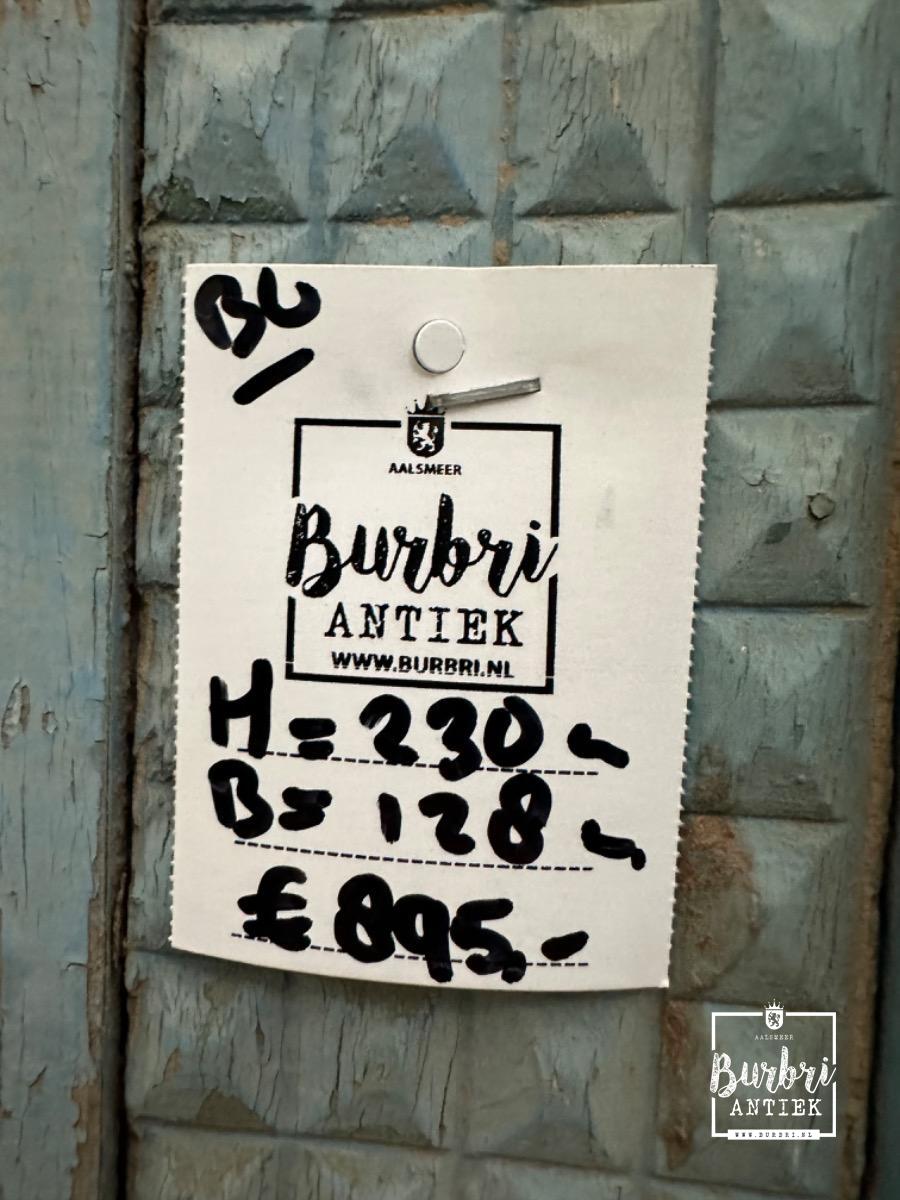 BC
AALSMEER
Burbri
ANTIEK
WWW.BURBRI.NL
H = 230 -
B = 128 -
€ 895,-
AALSMEER
Burbri
ANTIEK
WWW.BURBRI.NL